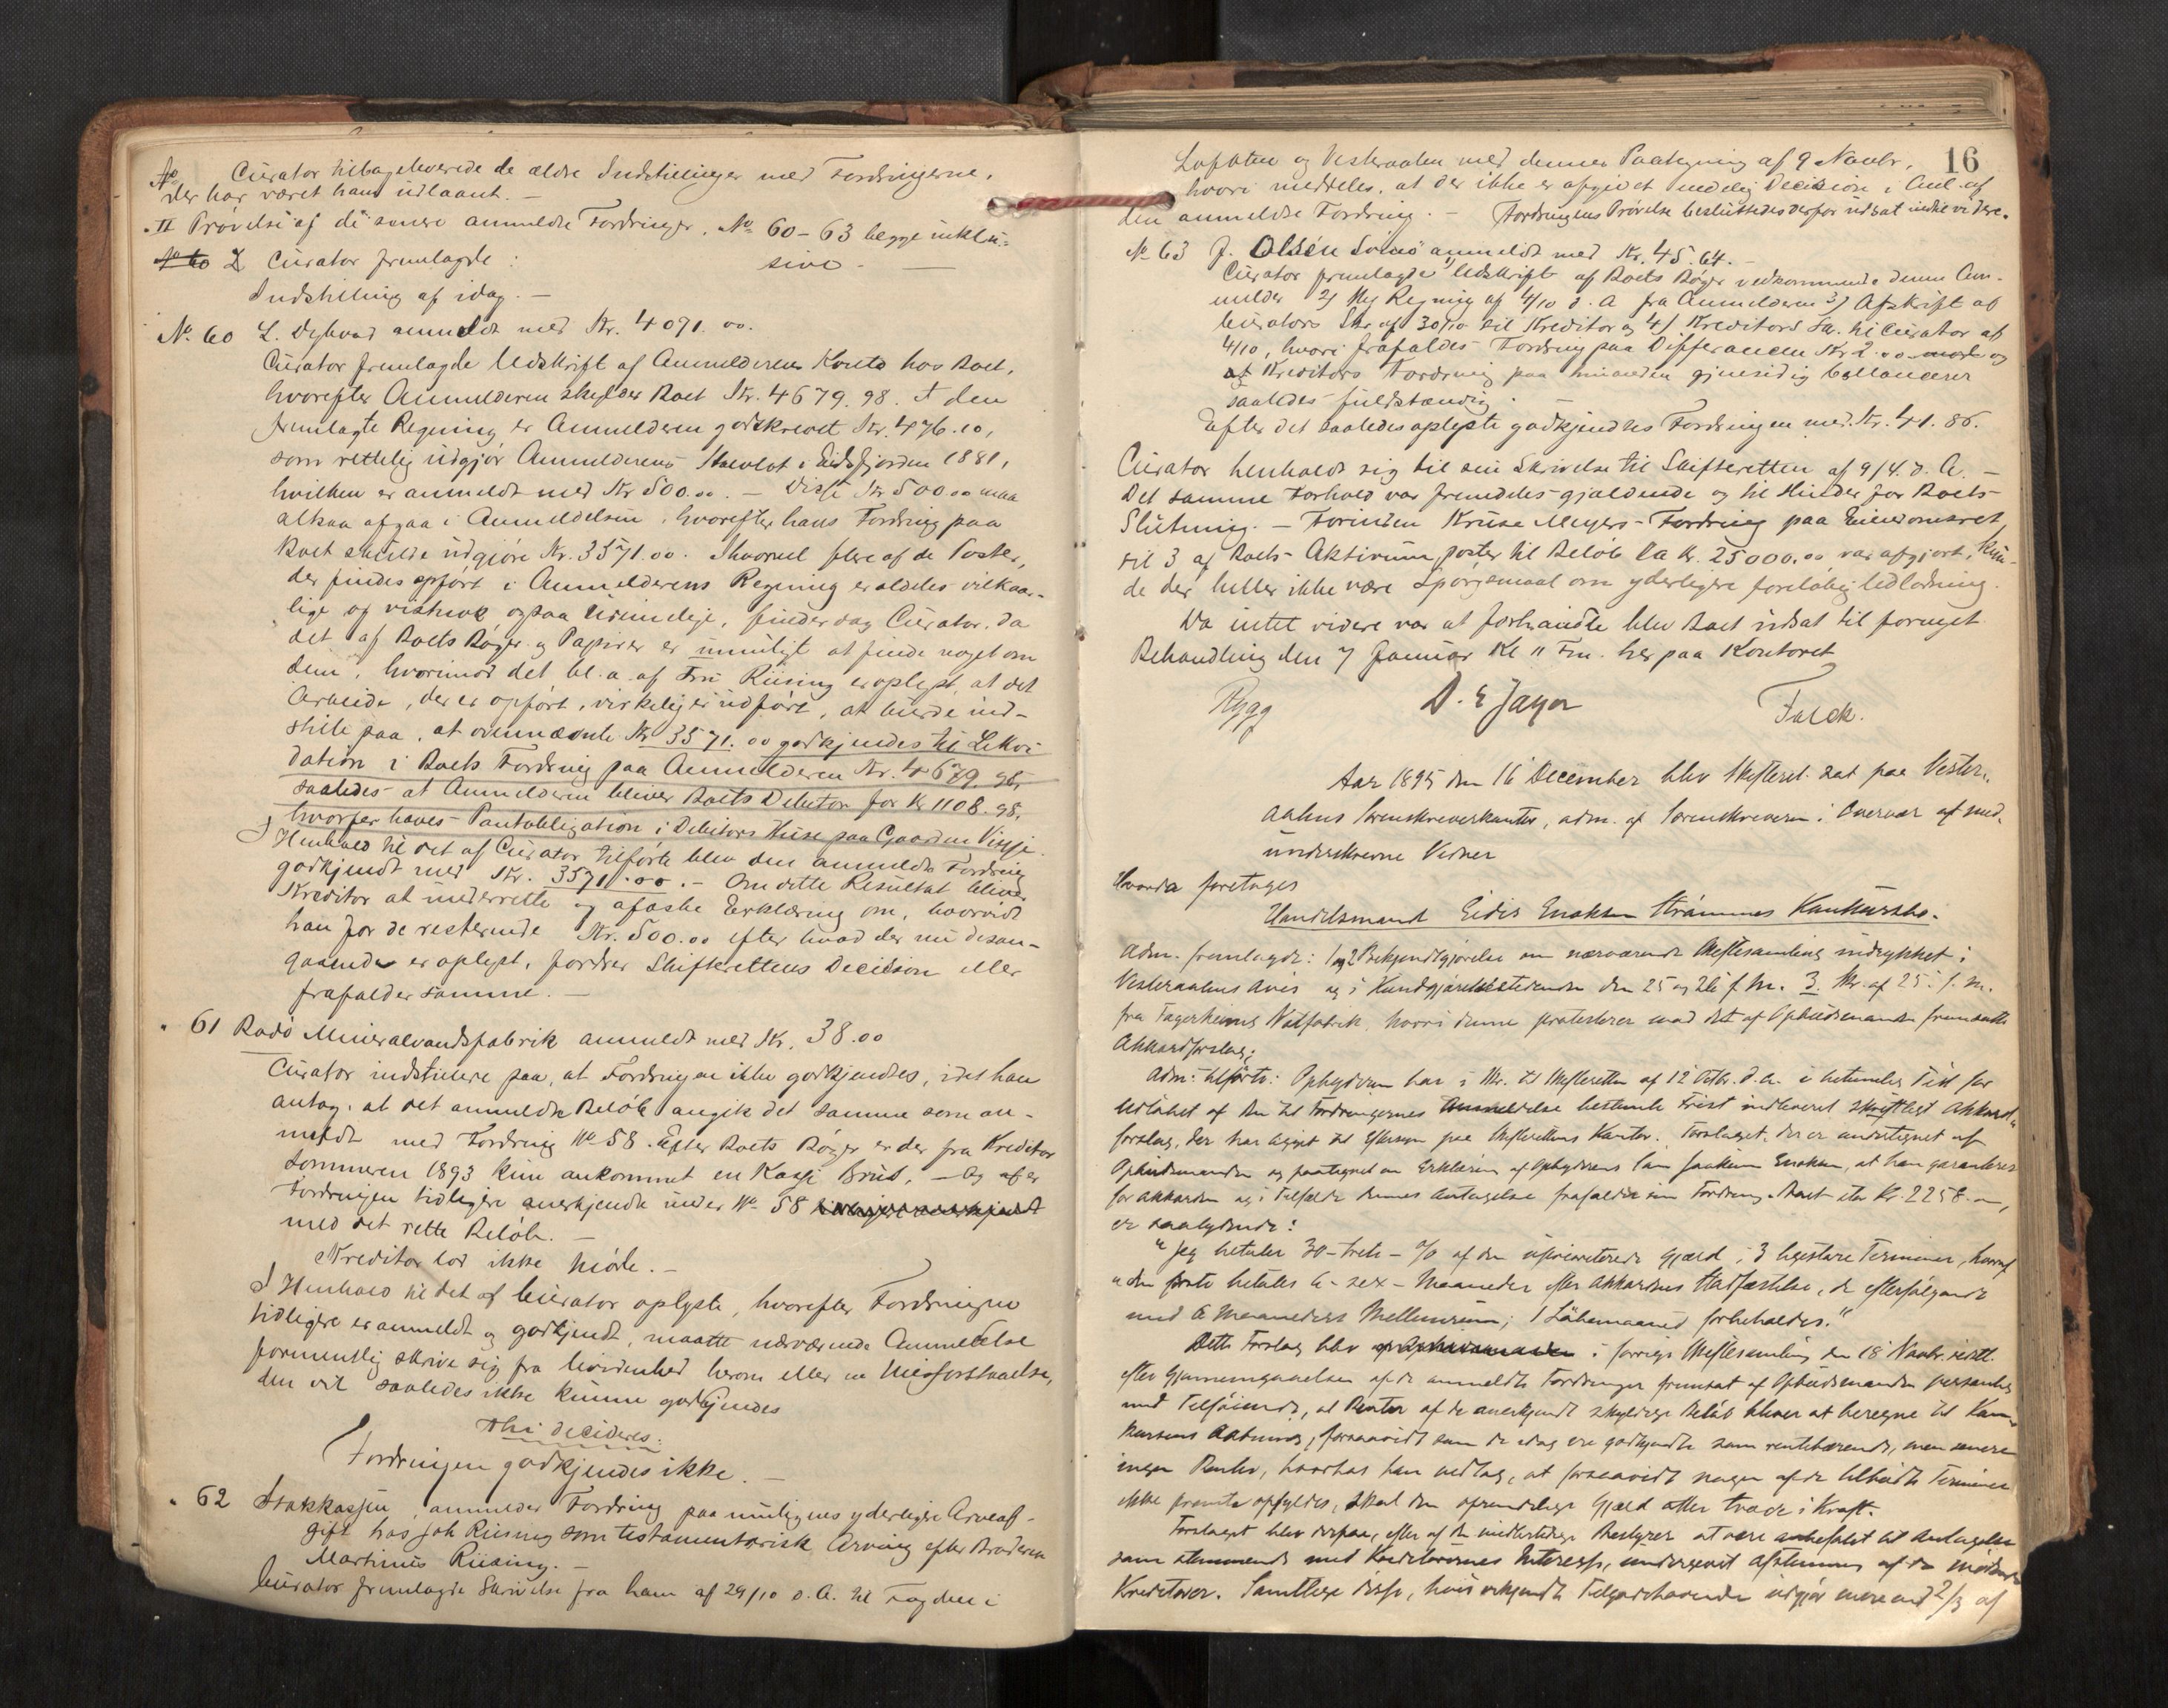 Curator tilbageleverede de ældre Indstillinger med Fordringerne,
der har været ham udlaant. —
II Prøvelse af de senere anmeldte Fordringer, No 60 – 63 begge inklu-
sive. —
Curator fremlagde:
Indstilling af idag. —
No. 60 L. Dybvad anmeldt med Kr. 4071.00.
Curator fremlagde Udskrift af Anmelderens Konto hos Boet,
hvorefter Anmelderen skylder Boet Kr. 4679.98. I den
fremlagte Regning er Anmelderen godskrevet Kr. 476.10,
som rettelig udgjør Anmelderens i Eidsfjorden 1881,
hvilken er anmeldt med Kr 500.00. — Disse Kr 500.00 maa
altsaa afgaa i Anmeldelsen, hvorefter hans Fordring paa
Boet skulde udgjøre Kr. 3571.00. Ihvorvel flere af de Poster,
der findes opført i Anmelderens Regning er aldeles vilkaar-
lige og ogsaa urimelige, finder dog Curator, da
det af Boets Bøger og Papirer er umuligt at finde noget om
dem, hvorimod det bl. a. af Fru Riising er oplyst, at det
Arbeide, der er opført, virkelig er udført, at burde ind-
stille paa, at omnævnte Kr 3571.00 godkjendes til Likvi-
dation i Boets Fordring paa Anmelderen Kr. 4679.98,
saaledes at Anmelderen bliver Boets Debitor for Kr 1108.98,
hvorfor haves Pantobligation i Debitors Huse paa Gaarden
I Henhold til det af Curator tilførte blev den anmeldte Fordring
godkjendt med Kr. 3571.00. — Om dette Resultat bliver
Kreditor at underrette og afæske Erklæring om, hvorvidt
han for de resterende Kr. 500.00 efter hvad der nu desan-
gaaende er oplyst, fordrer Skifterettens Decision eller
frafalder samme. —
" 61 Bodø Mineralvandsfabrik anmeldt med Kr. 38.00
Curator indstillere paa, at Fordringen ikke godkjendtes, idet han
antog, at det anmeldte Beløb angik det samme som an-
meldt med Fordring No 58. Efter Boets Bøger er der fra Kreditor
Sommeren 1893 kun ankommet en Kasse Brus, — Og af er
Fordringen tidligere anerkjendt under No 58
med det rette Beløb. —
Kreditor lod ikke møde. —
I Henhold til det af Curator oplyste, hvorefter Fordringen
tidligere er anmeldt og godkjendt, maatte nærværende Anmeldelse
formentlig skrive sig fra Uvidenhed herom eller en Misforstaaelse,
den vil saaledes ikke kunne godkjendes
Thi decideres:
Fordringen godkjendes ikke. —
" 62 Statskassen, anmelder Fordring paa muligens yderligere Arveaf-
gift hos Joh Riising som testamentarisk Arving efter Broderen
Martinus Riising. —
Curator fremlagde Skrivelse fra ham af 29/10 d. A. til Fogden i
16
Lofoten og Vesteraalen med dennes Paategning af 9 Novbr.,
hvori meddeles, at der ikke er afgivet endelig Decision i Anl. af
den anmeldte Fordring. — Fordringens Prøvelse besluttedes derfor udsat indtil videre.
No 63 J. Olsen anmeldt med Kr. 45.64. —
Curator fremlagde Udskrift af Boets Bøger vedkommende denne An-
melder 2) Ny Regning af 4/10 d. A fra Anmelderen 3) Afskrift af
Curators Skr. af til Kreditor og 4) Kreditors Skr. til Curator af
4/10, hvori frafaldes Fordring paa Differancen Kr 2.00 og
at Kreditors Fordring paa gjensidig ballancerer
saaledes fuldstændig. —
Efter det saaledes oplyste godkjendtes Fordringen med Kr. 41.86.
Curator henholdt sig til sin Skrivelse til Skifteretten af 9/4. d. A. —
Det samme Forhold var fremdeles gjældende og til Hinder for Boets
Slutning. — Forinden Kruse Meyers Fordring paa Eiendomsret
til 3 af Boets Aktivum poster til Beløb Ca Kr. 25000.00 var afgjort, kun-
de der heller ikke være Spørgsmaal om yderligere foreløbig Udlodning.
Da intet videre var at forhandle blev Boet udsat til fornyet
Behandling den 7 Januar Kl 11 Fm. her paa Kontoret
Rygg D. E Falck.
Aar 1895 den 16 December blev Skifteret sat paa Vester-
aalens Sorenskriverkontor, adm. af Sorenskriveren i Overvær af med-
underskrevne Vidner
Hvorda foretoges
Handelsmand Eidis Enoksen Strømmes Konkursbo.
Adm. fremlagde: 1 og 2 Bekjendtgjørelse om nærværende Skiftesamling indrykket i
Vesteraalens Avis og i Kundgjørelsestidende den 25 og 26 f. M. 3. Skr. af 25 f. M.
fra Fagerheims Notfabrik, hvori denne protesterer mod det af Opbudsmanden fremsatte
Akkordforslag;
Adm. tilførte: Opbyderen har i Skr. til Skifteretten af 12 Octbr. d. A. i betimelig Tid før
Udløbet af den til Fordringernes Anmeldelse bestemte Frist indleveret skriftligt Akkord-
forslag, der har ligget til Eftersyn paa Skifterettens Kontor. Forslaget, der er undertegnet af
Opbudsmanden og paategnet en Erklæring af Opbyderens Søn Joakim Enoksen, at han garanterer
for Akkorden og i Tilfælde dennes Antagelse frafalder sin Fordring i Boet stor Kr. 2258.–,
er saalydende:
"Jeg betaler 30 – treti – % af den uprioriterede Gjæld, i 3 ligestore Terminer, hvoraf
"den første betales 6 – sex – Maaneder efter Akkordens Stadfæstelse, de efterfølgende
med 6 Maaneders Mellemrum; 1 Løbemaaned forbeholdes."
Dette Forslag blev i forrige Skiftesamling den 18 Novbr. sidstl.
efter Gjennemgaaelsen af de anmeldte Fordringer fremsat af Opbudsmanden personlig
med Tilføiende, at Renter af de anerkjendt skyldige Beløb bliver at beregne til Kon-
kursens Aabning, forsaavidt som de idag ere godkjendte som rentebærende, men senere
ingen Renter, hvorhos han vedtog, at forsaavidt nogen af de tilbudte Terminer
ikke promte opfyldes, skal den oprindelige Gjæld atter træde i Kraft.
Forslaget blev derpaa, efter af den midlertidige Bestyrer at være anbefalet til Antagelse
som stemmende med Kreditorernes Interesse, undergivet Afstemning af de mødende
Kreditorer. Samtlige disse, hvis erkjendte Tilgodehavender udgjør mere end 2/3 af